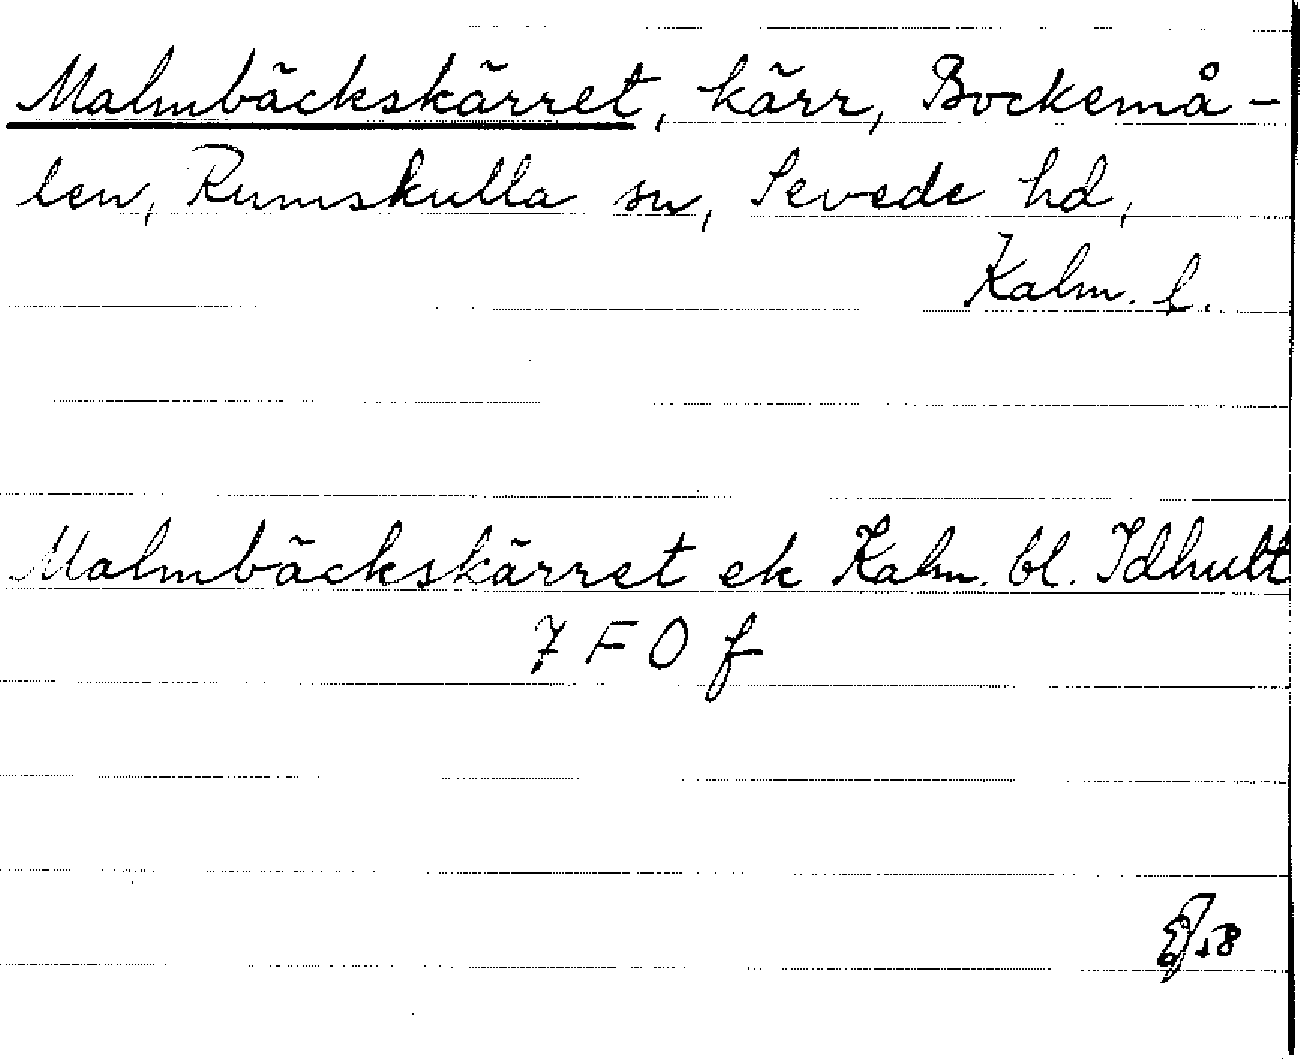 Malmbäckskärret, kärr, Bockemå-
len, Rumskulla sn, Sevede hd,
Kalm. l.
Malmbäckskärret ek Kalm. bl. Idhult
7 F 0 f
58